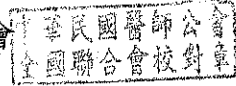 會
中華民國醫師公會
全國聯合會校對章